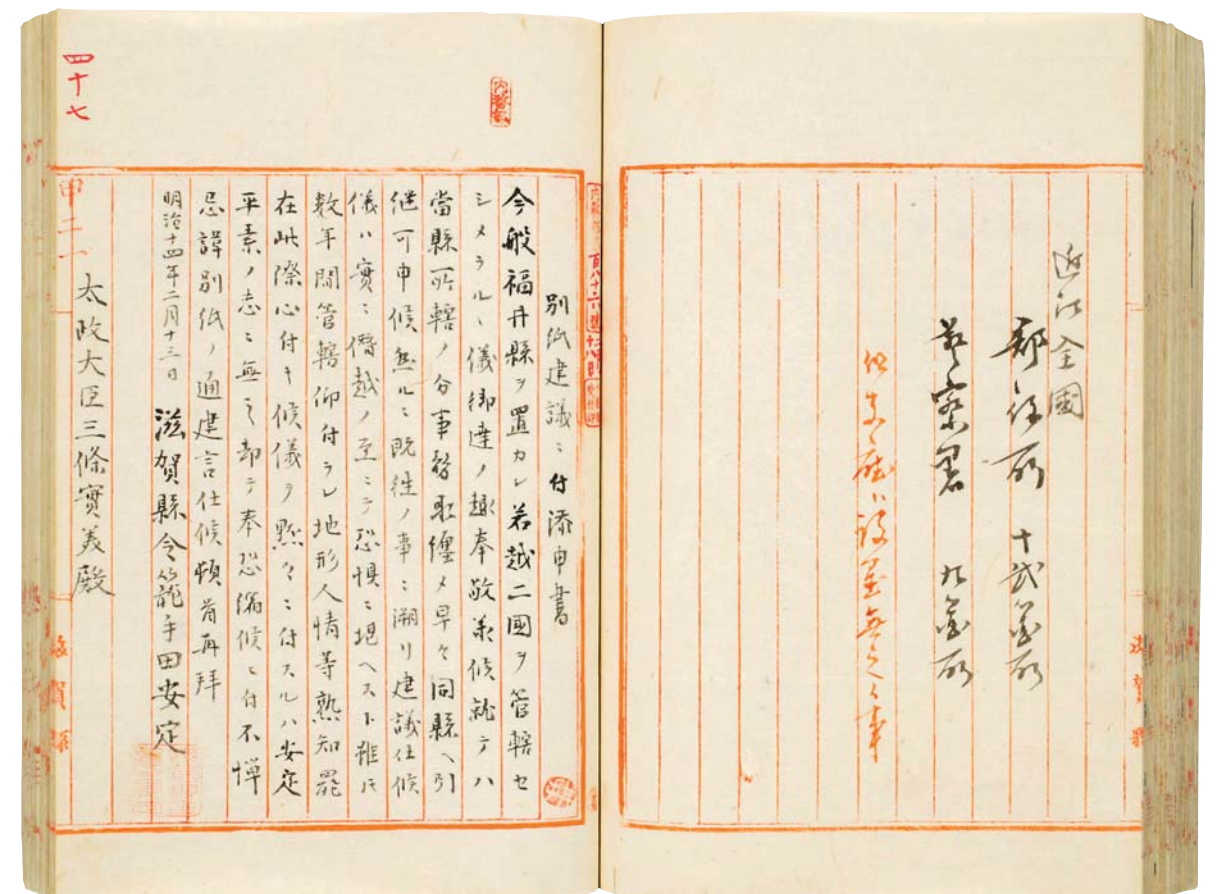 近江全國
郡役所 十弐箇所
警察署 九箇所
但支廳ハ設置無之事
別紙建議ニ付添申書
今般福井縣ヲ置カレ若越二國ヲ管轄セ
シメラルヽ儀御達ノ趣奉敬承候就テハ
當縣所轄ノ分事務取纏メ早々同縣ヘ引
継可申候無ルニ既往ノ事ニ溯リ建議仕候
儀ハ實ニ僭越ノ至ニテ恐惧ニ堪ヘスト雖𪜈
数年間管轄仰付ラレ地形人情等熟知罷
在此際心付キ候儀ヲ黙々ニ付スルハ安定
平素ノ志ニ無之却テ奉恐縮候ニ付不憚
忌諱別紙ノ通建言仕候頓首再拝
明治十四年二月十三日 滋賀縣令籠手田安定
太政大臣三條實美殿
四十七
甲二一
滋賀縣